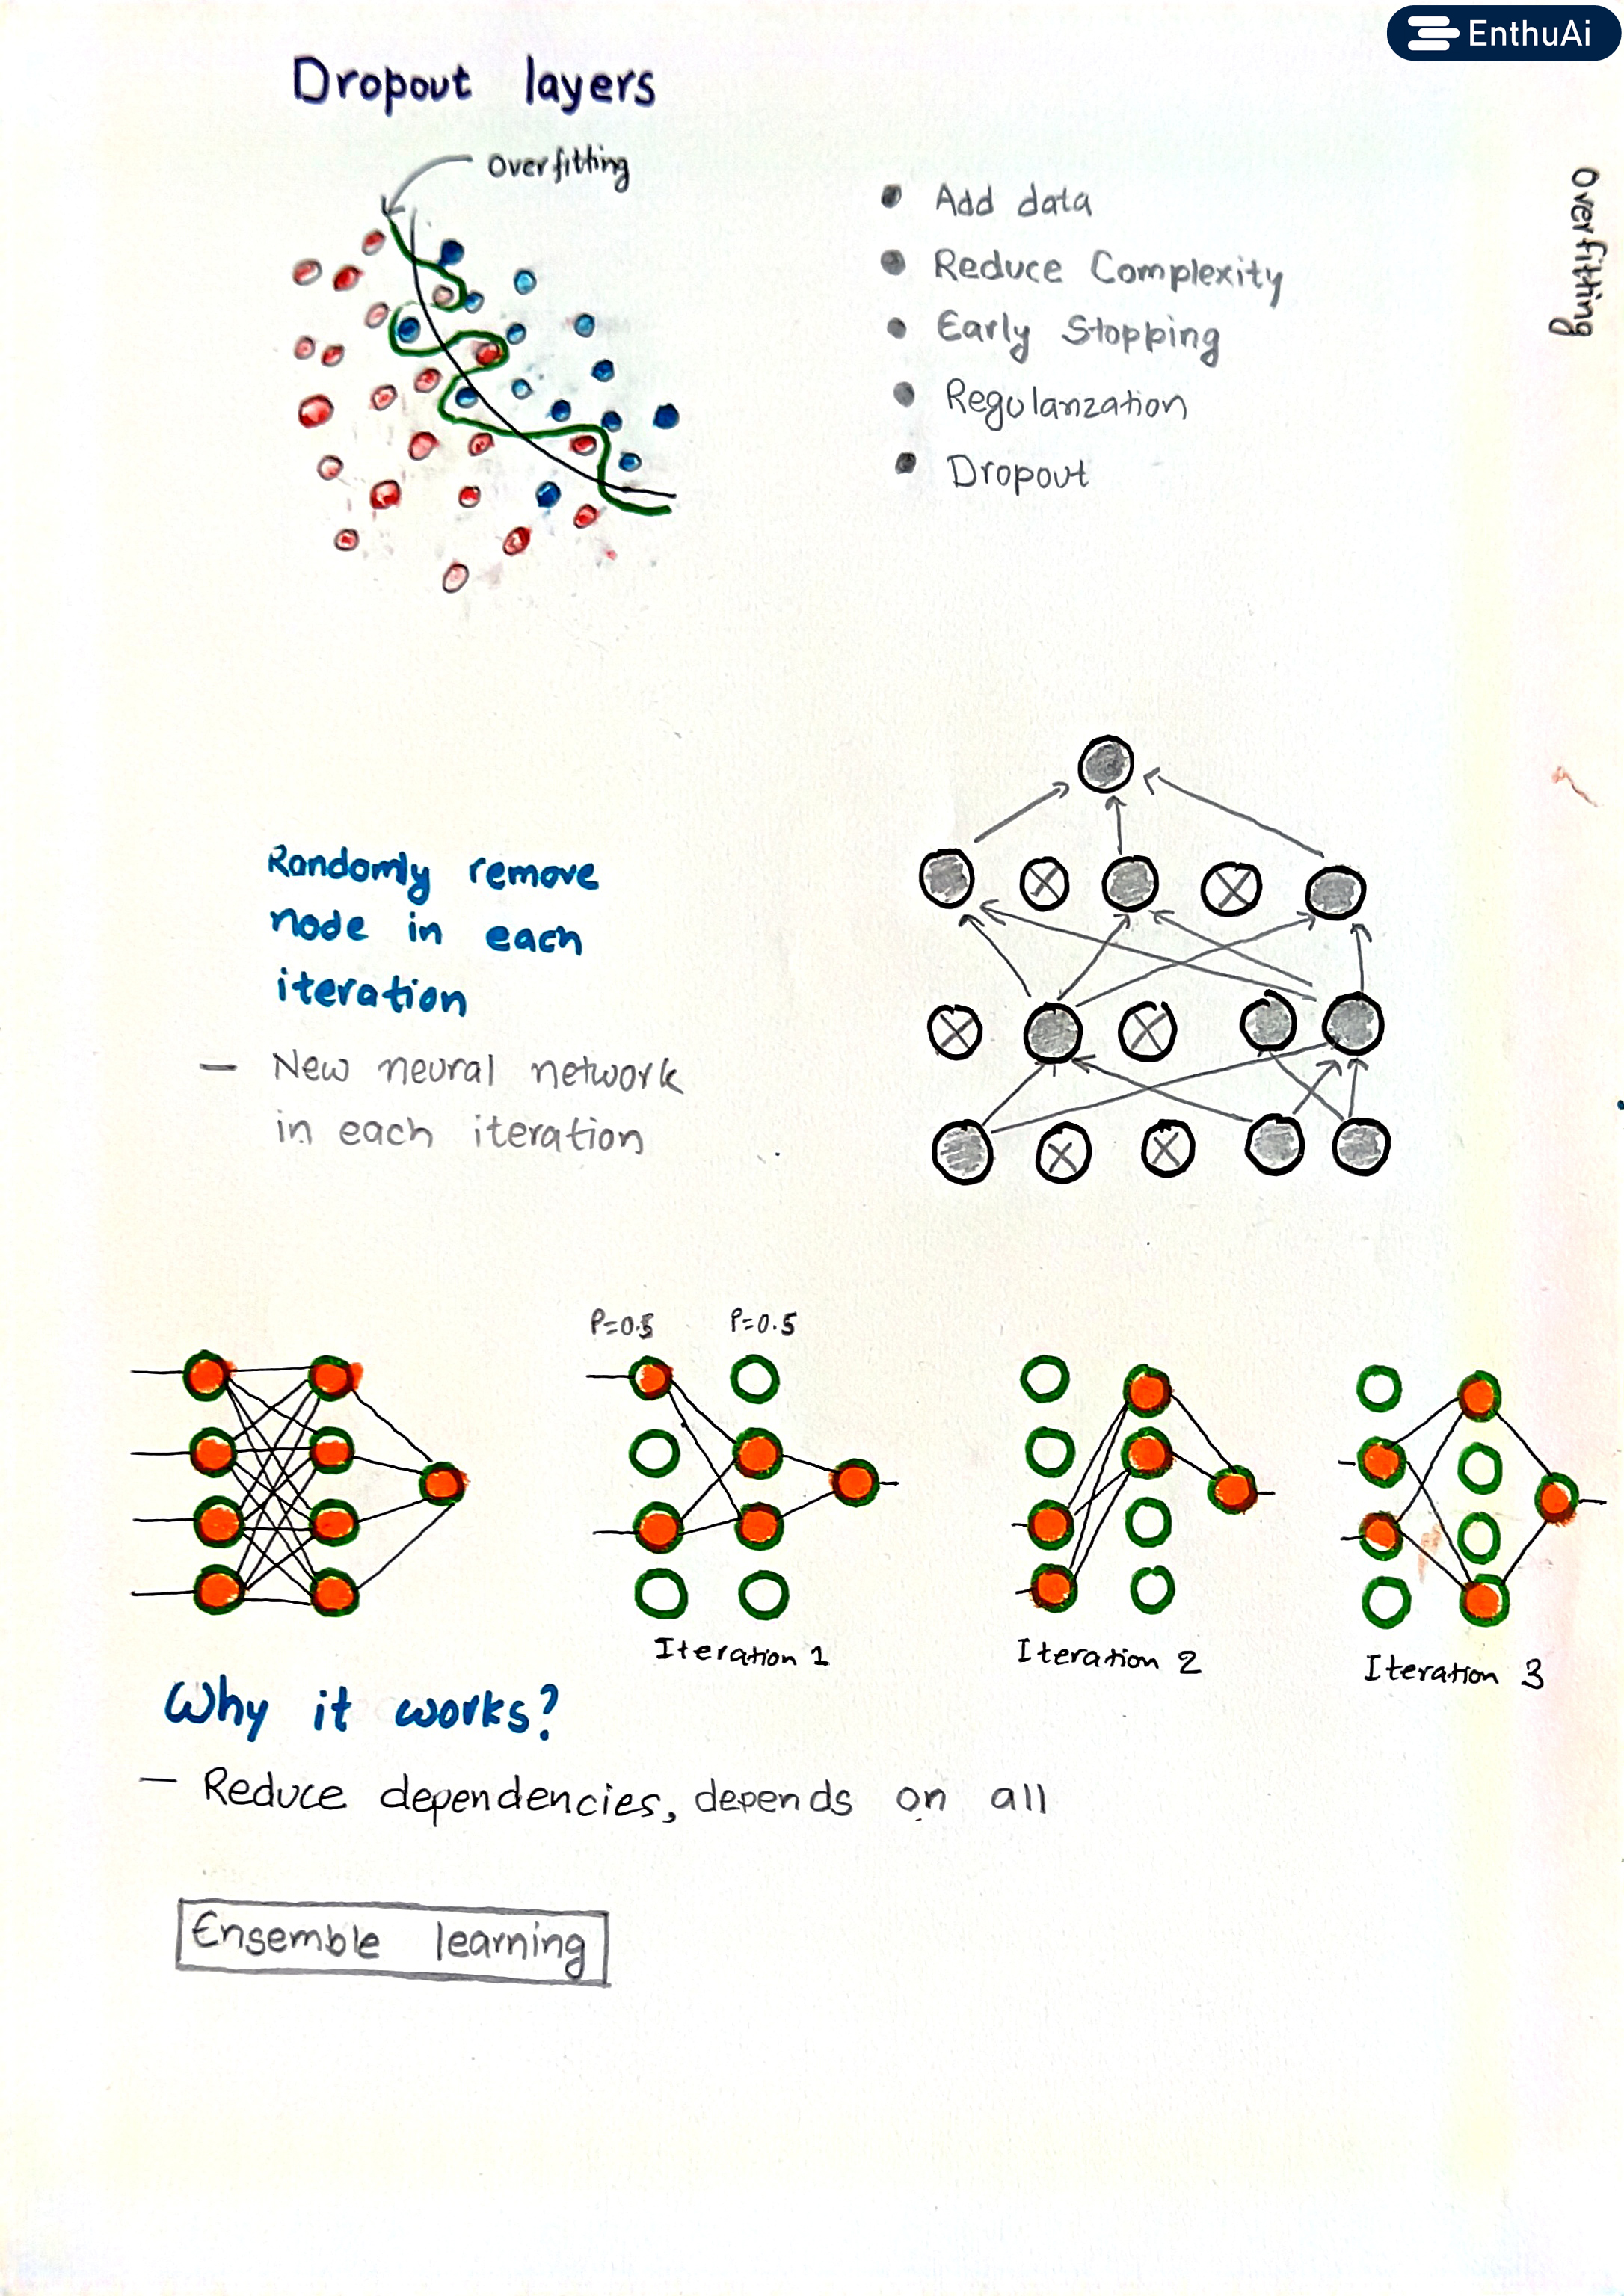 EnthuAi
Dropout layers
Overfitting
Overfitting
Add data
Reduce Complexity
Early Stopping
Regularization
Dropout
Randomly remove
node in each
iteration
— New neural network
in each iteration
P=0.5 P=0.5
Iteration 1
Iteration 2
Iteration 3
Why it works?
— Reduce dependencies, depends on all
Ensemble learning